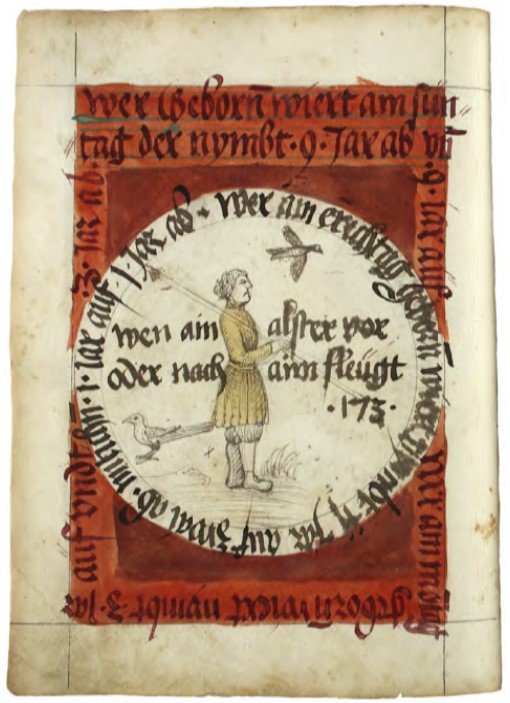 wer geborñ wiert am sün-
tag der nymbt · 9 · Jar ab vñ
· 9 · Jar auf wer am montag
geborñ wiert nymbt · 3 · Jar
auf vndt · 3 · Jar ab
wer am erichtag geborñ wiert nymbt Jar auf ab · mitichñ · 1 · Jar auf · 1 · Jar ab
wen ain alster vor
oder nach aim fleügt
· 173 ·